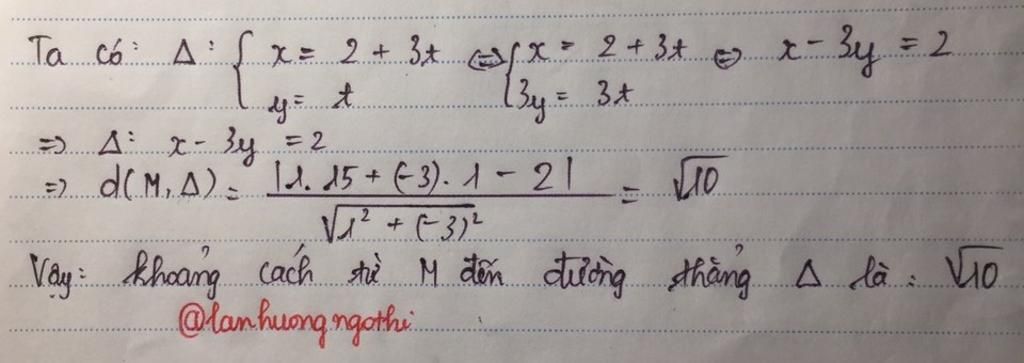 Ta có: Δ: { x = 2 + 3t ⇔ { x = 2 + 3t ⇔ x - 3y = 2
y = t 3y = 3t
=> Δ: x - 3y = 2
=> d(M, Δ) = |1. 15 + (-3). 1 - 2| / √(1² + (-3)²) = √10
Vậy: khoảng cách từ M đến đường thẳng Δ là: √10
@lanhuongngothi